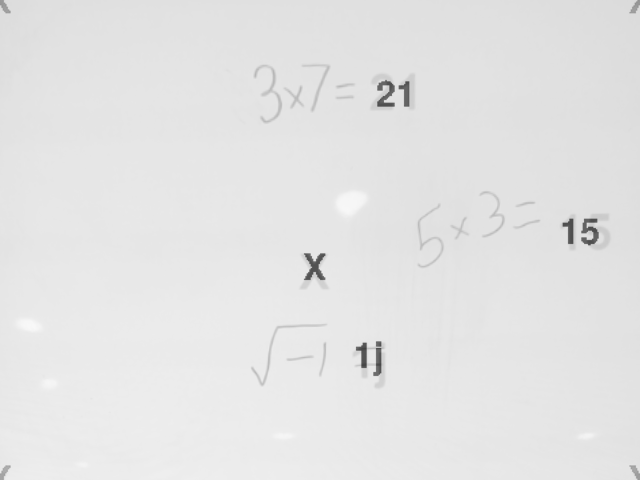 3×7= 21
5×3= 15
X
√-1 1j